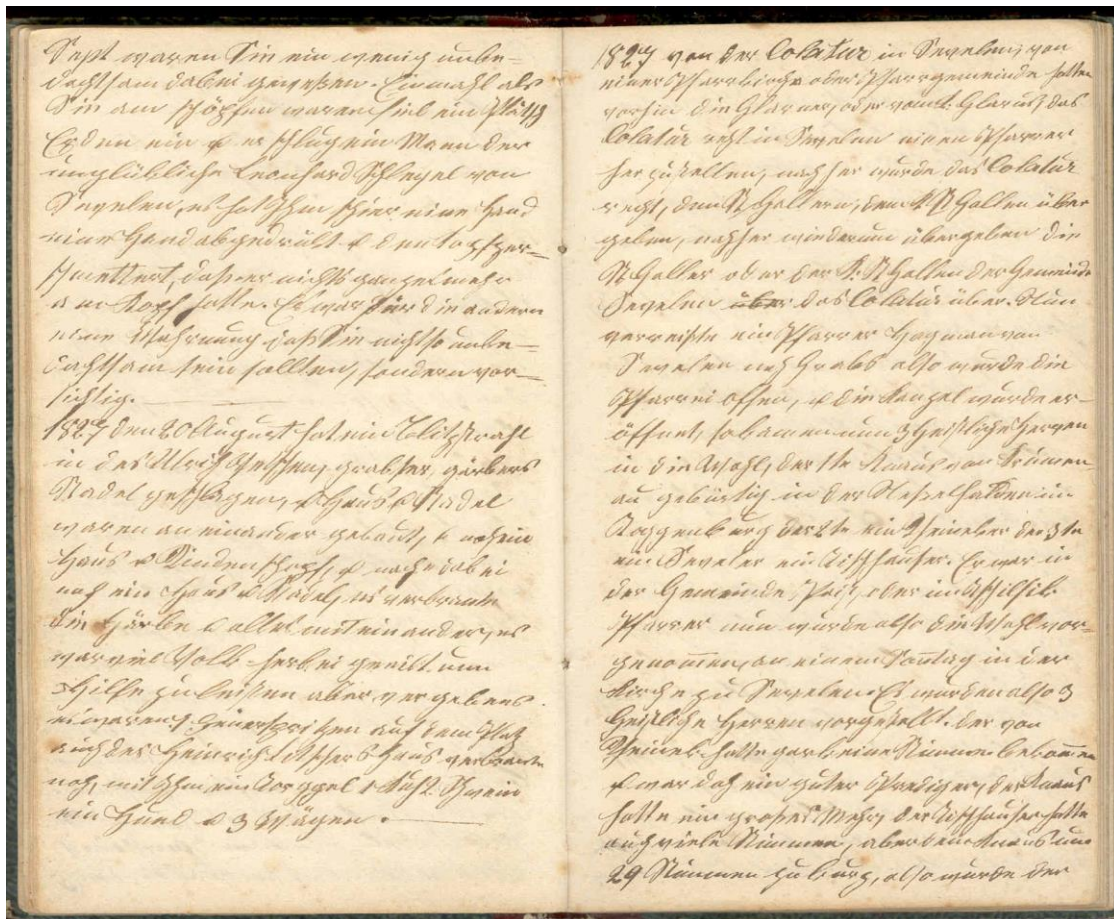 Sept waren Sie ein wenig unbe-
dachtsam dabei gewesen. Einmahl als
Sie am schöpfen waren fiel ein stück
Erden ein & erschlug ein Mann der
unglükliche Leonhard Schlegel von
Sevelen, es hat Ihm schier eine Hand
eine Hand abgedrükt & den Kopf zer-
schmettert, daß er nichts ganzes mehr
am Kopf hatte. Es war für die andern
eine Wahrnung daß Sie nicht so unbe-
dachtsam sein sollten, sondern vor-
sichtig.
1827 den 20 August hat ein Blitzstrahl
in des Ulrich grabser, gärbers
Stadel geschlagen, & Haus & Stadel
waren an einander gebaut, & noch ein
Haus & Rindenschopf, & nache dabei
noch ein Haus & Stadel, es verbrante
die Gärbe & alles mit einander, es
war viel Volk herbei geeilt um
Hilfe zu leisten aber vergebens.
es waren Feuerspritzen auf dem Platz
auch des Heinrich Litschers Haus verbrante
noch, mit Ihm ein Torggel 1 Kuh 2 Schwein
ein Hund & 3 Wägen.
1827 von der Colatur in Sevelen, von
einer Pfarrkirche oder Pfarrgemeinde hatten
vorhin die Glarner, oder vom Kt. Glarus, das
Colatur recht in Sevelen einen Pfarrer
herzustellen, nachher wurde das Colatur
recht, den St Gallern, dem Kt St Gallen über
geben, nachher wiederum übergeben die
St Galler oder der Kt. St Gallen der Gemeinde
Sevelen über das Colatur über. Nun
verreiste ein Pfarrer Hagman von
Sevelen nach Grabs also wurde die
Pfarrei offen, & die Kanzel wurde er-
öffnet, so kamen nun 3 Geistliche Herren
in die Wahl, der 1te Knaus von Krumen-
au gebürtig in der Neßelhalden im
Toggenburg der 2te ein Rheineker der 3te
ein Seveler ein Tischhauser. Er war in
der Gemeinde oder im
Pfarrer nun wurde also die Wahl vor-
genommen, an einem Sontag in der
Kirche zu Sevelen. Es wurden also 3
Geistliche Herren vorgestellt. der von
Rheinek hatte gar keine Stimmen bekommen
& war doch ein guter Prediger, der Knaus
hatte ein großes Mehr, der Tischhauser hatte
auch viele Stimmen, aber dem Knaus um
29 Stimmen zu kurz, also wurde der